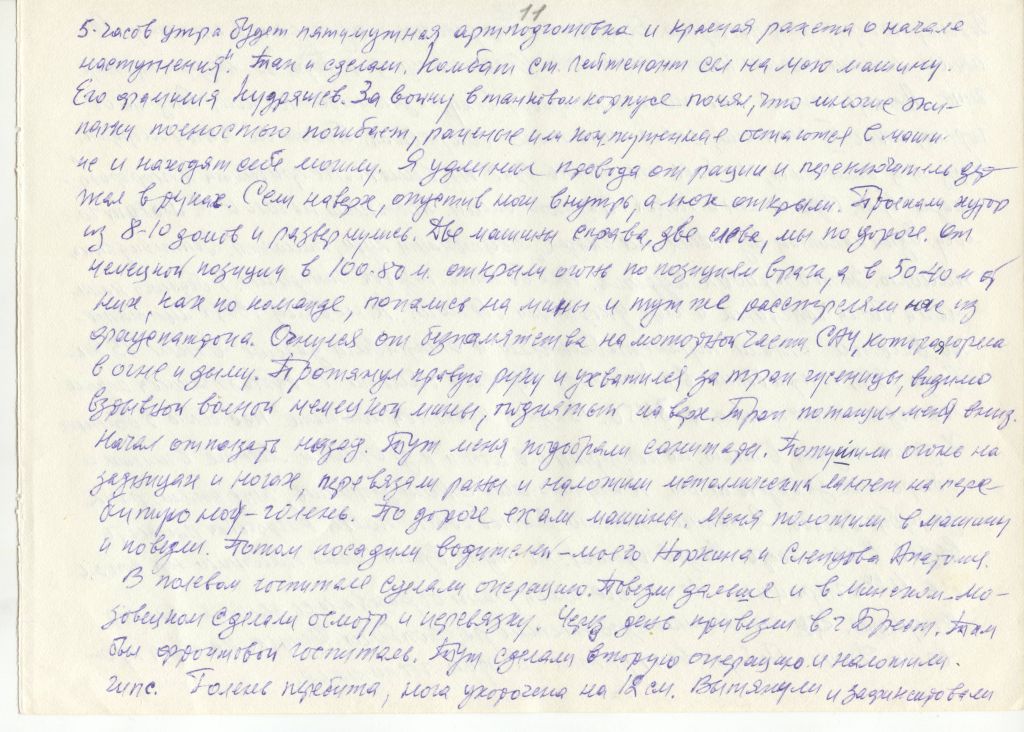 11
5 часов утра будет пятиминутная артподготовка и красная ракета о начале
наступления". Так и сделали. Комбат ст. лейтенант сел на мою машину.
Его фамилия Кудряшев. За войну в танковом корпусе понял, что многие эки-
пажи полностью погибают, раненые или контуженные остаются в маши-
не и находят себе могилу. Я удлинил провода от рации и переключатель дер-
жал в руках. Сели наверх, опустив ноги внутрь, а люк открыли. Проехали хутор
из 8-10 домов и развернулись. Две машины справа, две слева, мы по дороге. От
немецкой позиции в 100-80 м. открыли огонь по позициям врага, а в 50-40 м от
них, как по команде, попались на мины и тут же расстреляли нас из
фауспандрона. Очнулся от беспамятства на моторной части САУ, которая горела
в огне и дыму. Протянул правую руку и ухватился за трак гусеницы, видимо
взрывной волной немецкой мины, поднятый наверх. Трак потащил меня вниз.
Начал отползать назад. Тут меня подобрали санитары. Потушили огонь на
задницах и ногах, перевязали раны и наложили металлический на пере-
битую ногу - голень. По дороге ехали машины. Меня положили в машину
и повезли. Потом посадили водителей - моего Норкина и Слепцова Анатолия.
В полевом госпитале сделали операцию. Повезли дальше и в Минском-Ма-
зовецком сделали осмотр и перевязку. Через день привезли в г Брест. Там
был фронтовой госпиталь. Тут сделали вторую операцию и наложили
гипс. Голень перебита, нога укорочена на 12 см. Вытянули и зафиксировали